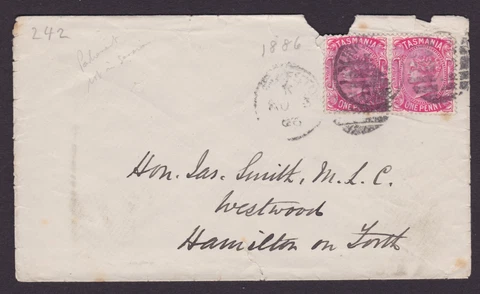 242
1886
TASMANIA TASMANIA
ONE PENNY ONE PENNY
Hon. Jas. Smith, M. L. C.
Westwood
Hamilton on Forth